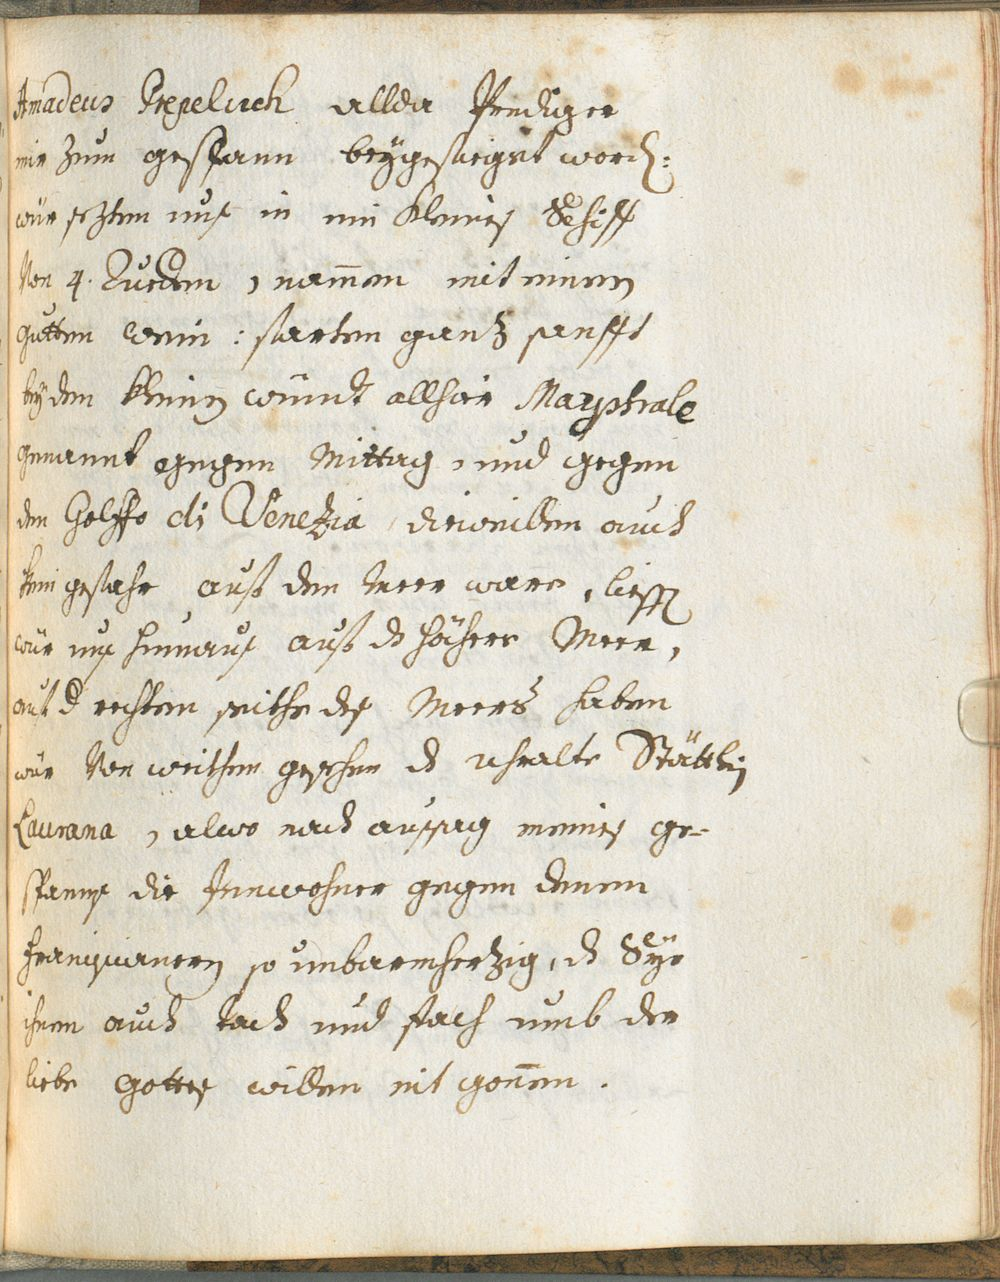 Amadeus Prepeluch allda Prediger
mir zum gespann beygefüegt word:
wür sezten unß in ein kleines Schiff
Von 4. Ruedern, nam̅en mit einen
gutten wein: fuehren gantz sanfft
bey den kleinen windt allhier Maystrale
genannt gegen Mittag, und gegen
den Golffo di Venezia, dieweillen auch
kein gefahr auß dem Meer ware, lieffen
wür unß hinauß auß dz höhere Meer,
auf d rechten seithe deß Meers haben
wür Von weithen gesehen dz uhralte Stättlein
Laurana, alwo nach aussag meines ge-
spanns die Innwohner gegen denen
Franziscanern so unbarmherzig, dz Sye
ihnen auch tach und fach umb der
liebe Gottes willen nit gön̅en.